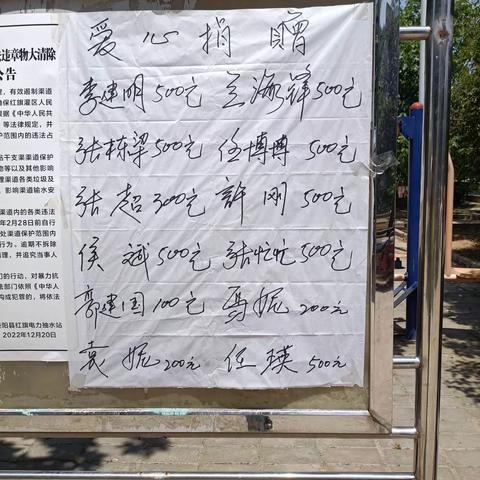 爱心捐赠
李建明500元 王海锋500元
张栋梁500元 任博博500元
张超300元 许刚500元
侯斌500元 张忙忙500元
郭建国100元 妮200元
袁妮200元 任瑛500元
违章物大清除
公告
，有效遏制渠道
保红旗灌区人民
根据《中华人民共
等法律规定，并
护范围内的违法占
站干支渠渠道保护
物等以及其他影响
理渠道各类垃圾及
影响渠道输水安
渠道内的各类违法
年2月28日前自行
处渠道保护范围内
行为。逾期不拆除
清理，并追究当事人
们的行动，对暴力抗
法部门依照《中华人
构成犯罪的，将依法
阳县红旗电力抽水站
2022年12月20日